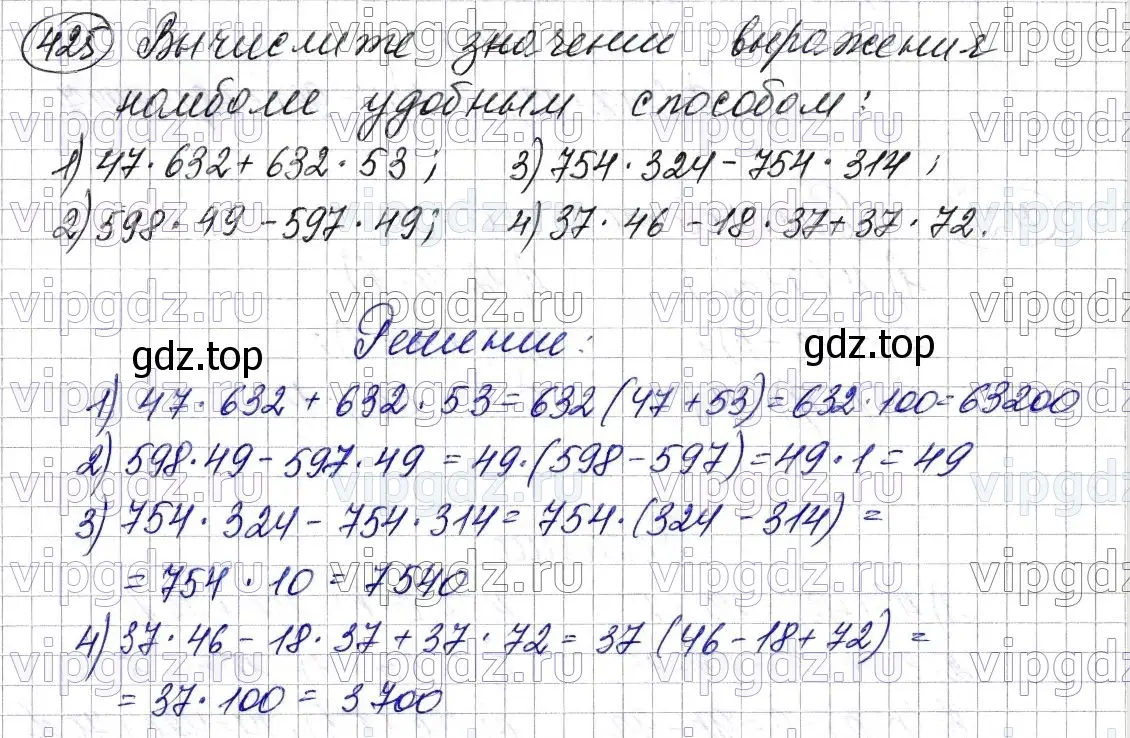 425 Вычислите значение выражения
наиболее удобным способом:
1) 47·632+632·53; 3) 754·324-754·314;
2) 598·49-597·49; 4) 37·46-18·37+37·72.
Решение:
gdz.top gdz.top
1) 47·632+632·53=632(47+53)=632·100=63200
2) 598·49-597·49=49·(598-597)=49·1=49
3) 754·324-754·314=754·(324-314)=
=754·10=7540
4) 37·46-18·37+37·72=37(46-18+72)=
=37·100=3700
vipgdz.ru